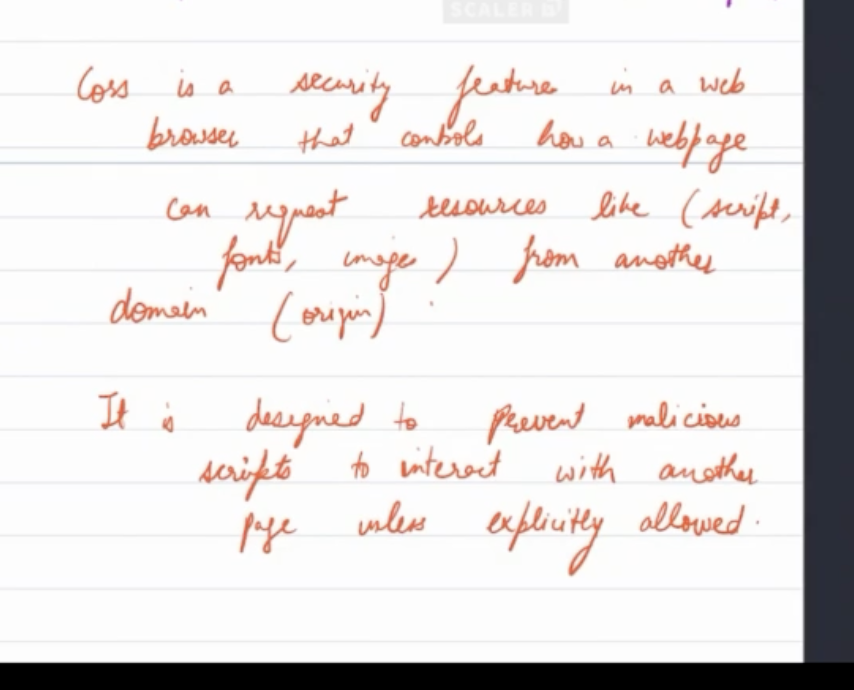 SCALER
Cors is a security feature in a web
browser that controls how a webpage
can request resources like (script,
fonts, images) from another
domain (origin).
It is designed to prevent malicious
scripts to interact with another
page unless explicitly allowed.